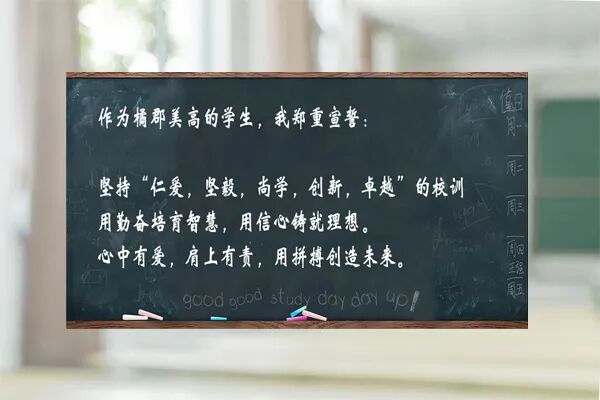 作为橘郡美高的学生，我郑重宣誓：
坚持“仁爱，坚毅，尚学，创新，卓越”的校训
用勤奋培育智慧，用信心铸就理想。
心中有爱，肩上有责，用拼搏创造未来。
good good study day day up!
值日
周一
周二
周三
周四
周五